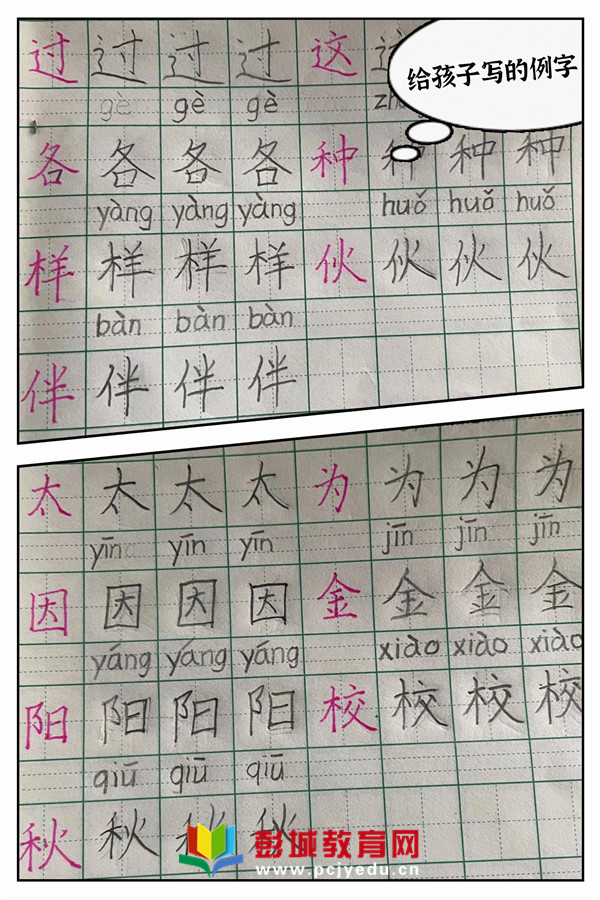 给孩子写的例字
过 过 过 过 这
gè gè gè
各 各 各 各 种 种 种 种
yàng yàng yàng huǒ huǒ huǒ
样 样 样 样 伙 伙 伙 伙
bàn bàn bàn
伴 伴 伴 伴
太 太 太 太 为 为 为 为
yīn yīn yīn jīn jīn jīn
因 因 因 因 金 金 金 金
yáng yáng yáng xiào xiào xiào
阳 阳 阳 阳 校 校 校 校
qiū qiū qiū
秋 秋 秋 秋
彭城教育网
www.pcjyedu.cn